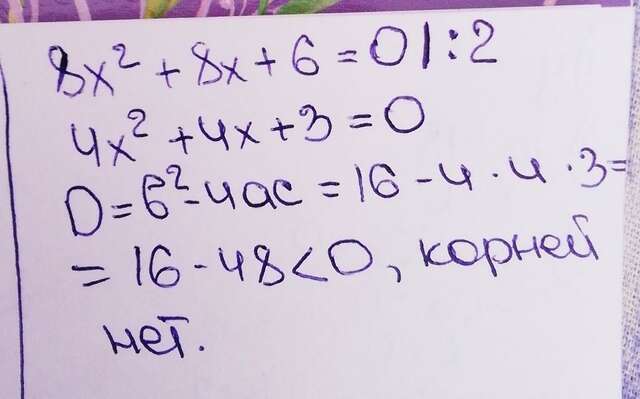 8x² + 8x + 6 = 0 | : 2
4x² + 4x + 3 = 0
D = b² - 4ac = 16 - 4 · 4 · 3 =
= 16 - 48 < 0, корней
нет.